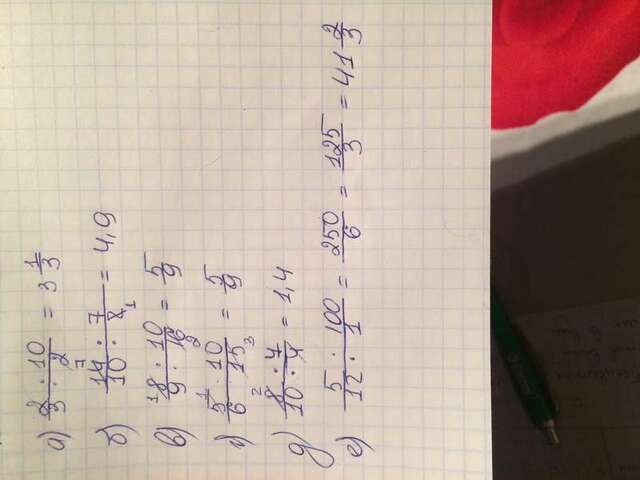 а) 2 · 10 / 3 · 2 = 3 1/3
б) 14 7 · 7 / 10 · 2 1 = 4,9
в) 1 8 · 10 / 9 · 16 2 = 5/9
г) 5 1 · 10 / 6 · 15 3 = 5/9
д) 8 2 · 7 / 10 · 4 = 1,4
е) 5 · 100 / 12 · 1 = 250/6 = 125/3 = 41 2/3